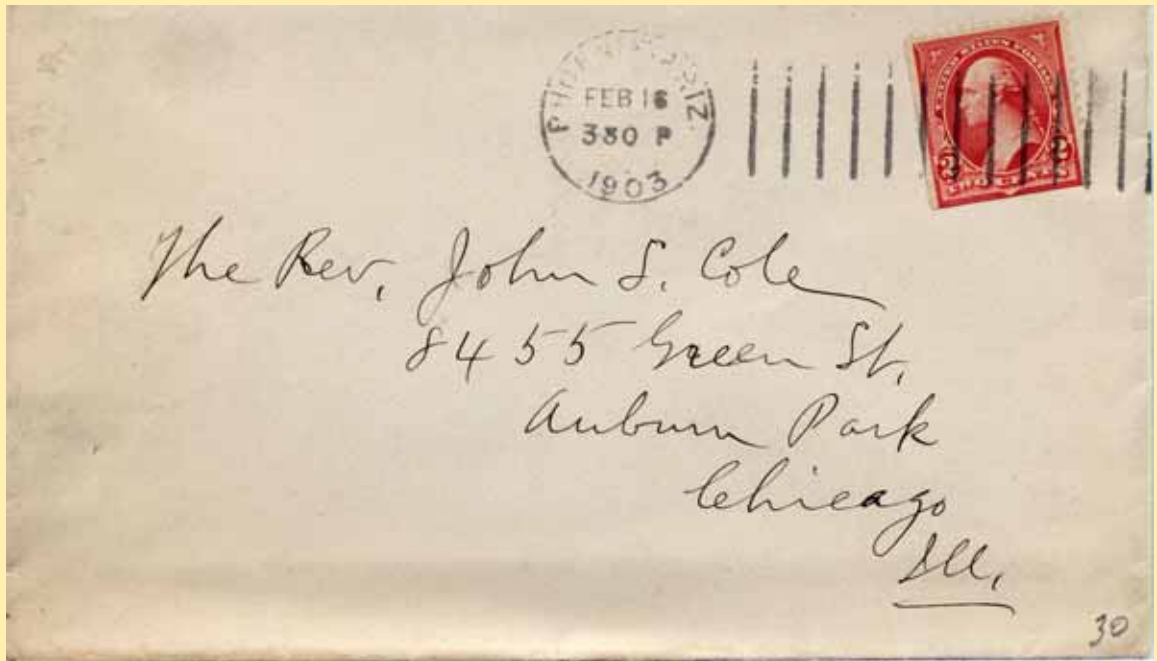 PHOENIX, ARIZ.
FEB 16
3 30 P
1903
UNITED STATES POSTAGE
2 2
TWO CENTS
The Rev. John S. Cole
8455 Green St.
Auburn Park
Chicago
Ill.
30